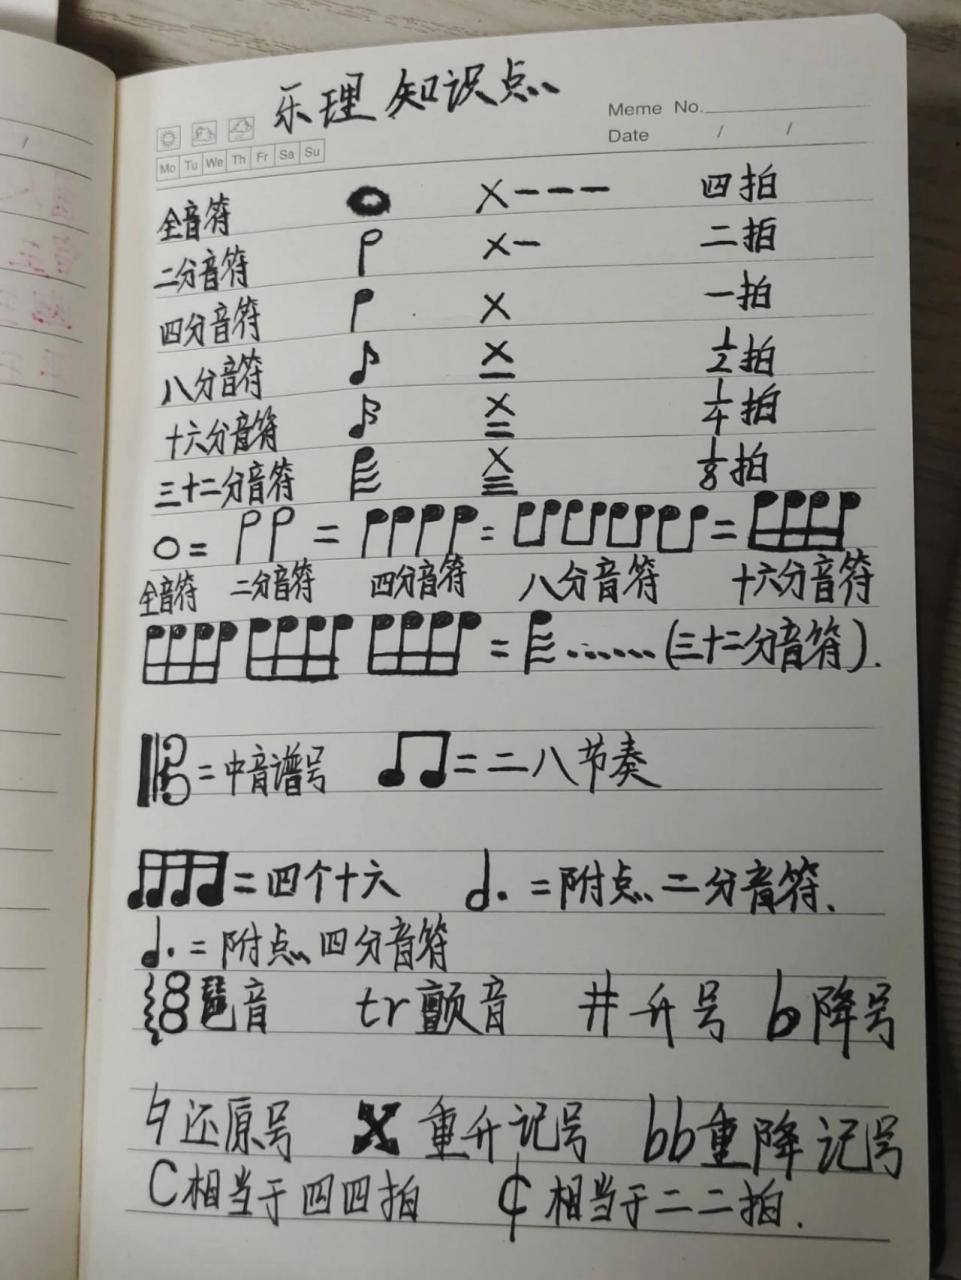 乐理知识点
Meme No.
Date / /
Mo Tu We Th Fr Sa Su
全音符 X - - - 四拍
二分音符 X - 二拍
四分音符 X 一拍
八分音符 X 1/2拍
十六分音符 X 1/4拍
三十二分音符 X 1/8拍
= = = =
全音符 二分音符 四分音符 八分音符 十六分音符
= ……(三十二分音符).
=中音谱号 =二八节奏
=四个十六 =附点二分音符.
=附点四分音符
琶音 tr颤音 #升号 b降号
♮还原号 x重升记号 bb重降记号
C相当于四四拍 ¢相当于二二拍.